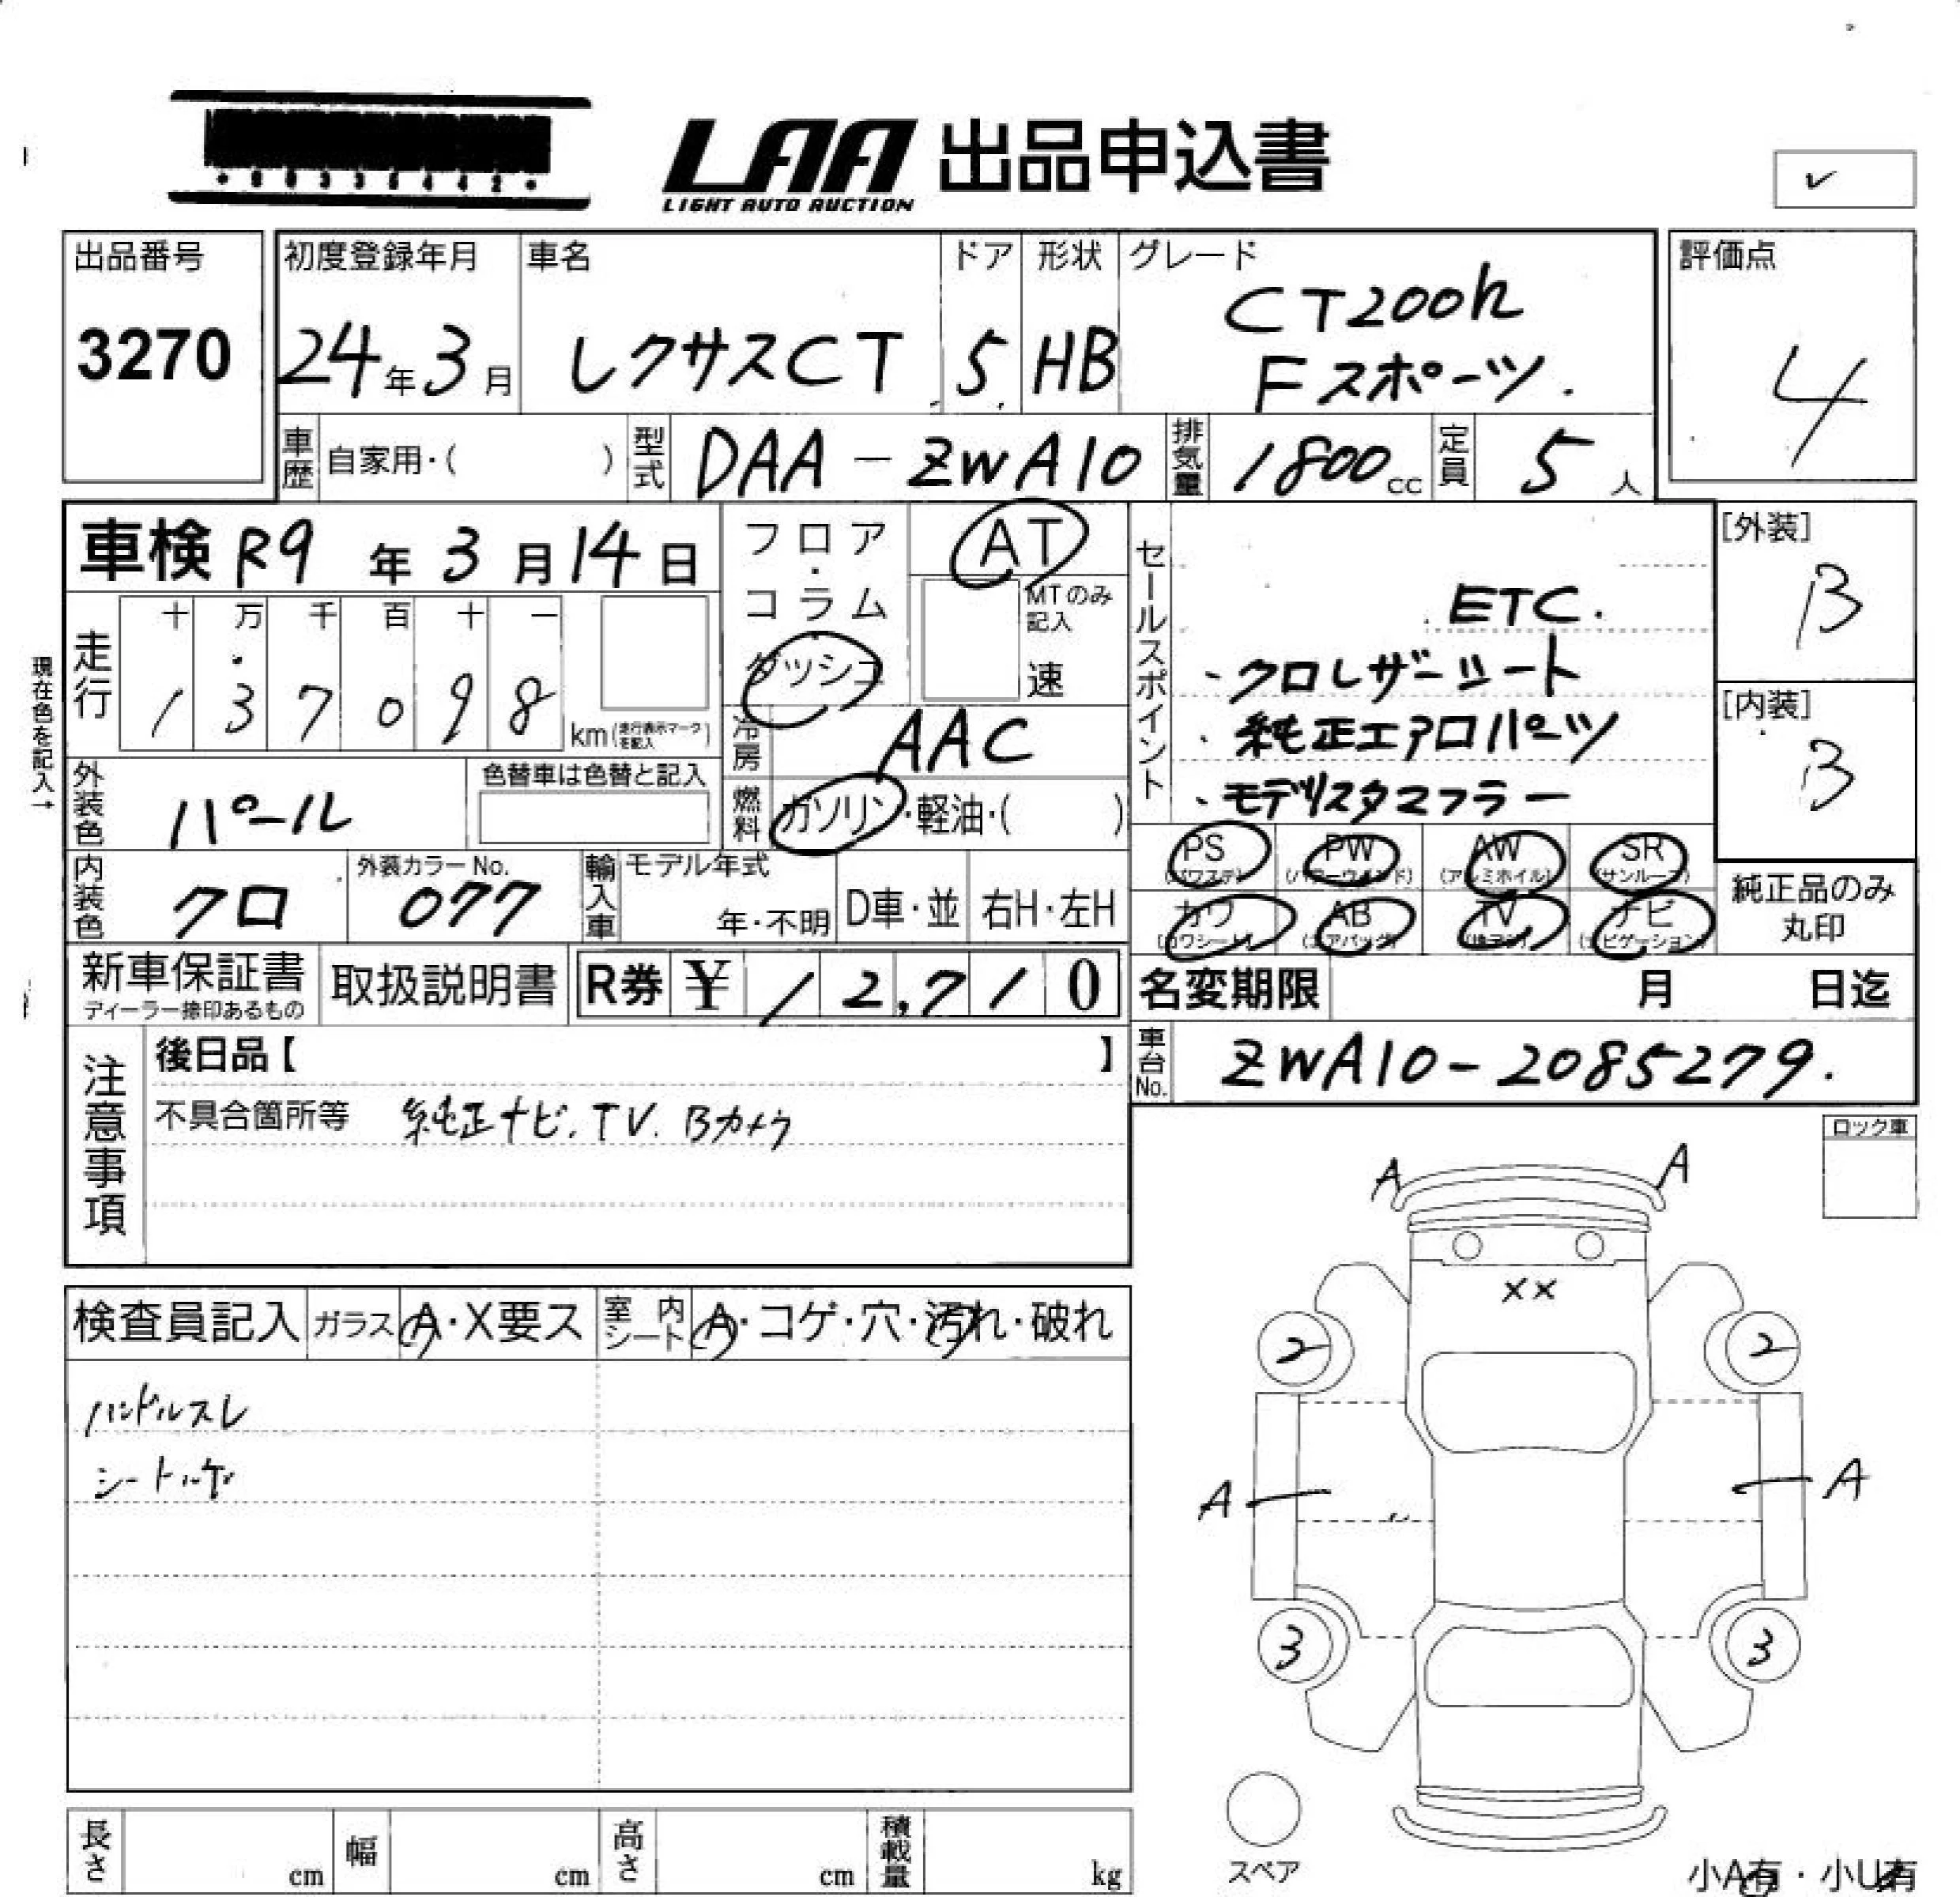 LAA 出品申込書
LIGHT AUTO AUCTION
出品番号
3270
初度登録年月
24年3月
車名
レクサスCT
ドア
5
形状
HB
グレード
CT200h
Fスポーツ.
評価点
4
車歴 自家用・( )
型式 DAA-ZWA10
排気量 1800cc
定員 5人
車検 R9年3月14日
フロア・コラム
ダッシュ
AT
MTのみ記入
速
現在色を記入→
走行
十 万 千 百 十 一
1 3 7 0 9 8
km(走行表示マークを記入)
冷房 AAC
燃料 ガソリン・軽油・( )
セールスポイント
ETC.
・クロレザーシート
・純正エアロパーツ
・モデリスタマフラー
[外装]
B
[内装]
B
外装色 パール
色替車は色替と記入
内装色 クロ
外装カラーNo.
077
輸入車
モデル年式
年・不明
D車・並
右H・左H
PS (パワステ)
PW (パワーウインド)
AW (アルミホイル)
SR (サンルーフ)
カワ (カワシート)
AB (エアバッグ)
TV (地デジ)
ナビ (ナビゲーション)
純正品のみ
丸印
新車保証書
ディーラー捺印あるもの
取扱説明書
R券 ¥ 12,710
名変期限 月 日迄
車台No. ZWA10-2085279.
注意事項
後日品【 】
不具合箇所等 純正ナビ.TV.Bカメラ
ロック車
検査員記入 ガラス A・X要ス
室内シート A・コゲ・穴・汚れ・破れ
ハンドルスレ
A A
XX
2 2
A A
3 3
スペア
長さ cm
幅 cm
高さ cm
積載量 kg
小A有・小U有